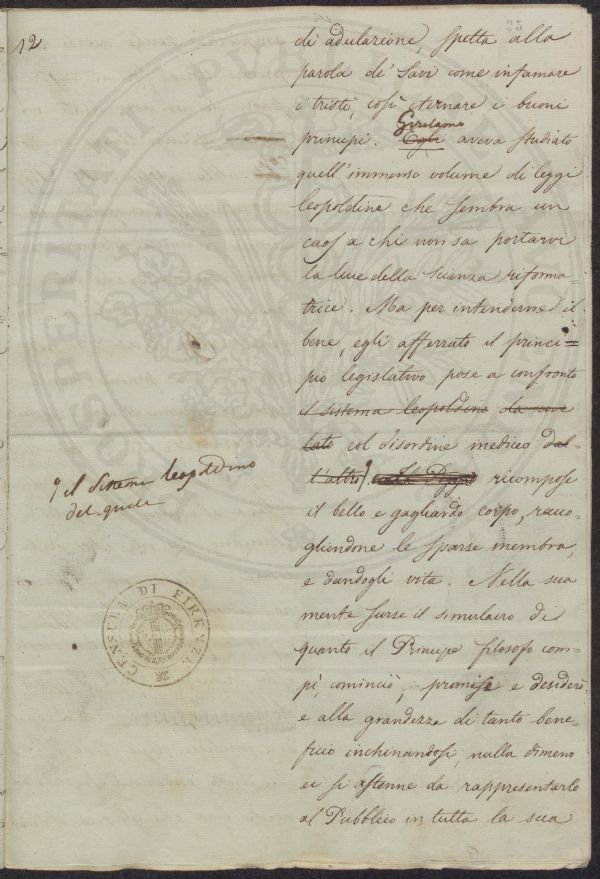 12
25
di adulazione, spetta alla
parola de' Savi come infamare
i tristi, così eternare i buoni
Girolamo
principi. Egli aveva studiato
quell'immenso volume di leggi
leopoldine che sembra un
caos a chi non sa portarvi
la luce della scienza riforma
trice. Ma per intenderne il
bene, egli afferrato il princi=
pio legislativo pose a confronto
il sistema leopoldino da una
lato col disordine mediceo dal
l'altro, ricompose
il sistema leopoldino
del quale
il bello e gagliardo corpo, racco
gliendone le sparse membra,
e dandogli vita. Nella sua
mente surse il simulacro di
quanto il Principe filosofo com-
pì, cominciò, promise e desiderò
e alla grandezza di tanto bene-
ficio inchinandosi, nulla dimeno
ei si astenne da rappresentarlo
al Pubblico in tutta la sua
CENSURA DI FIRENZE